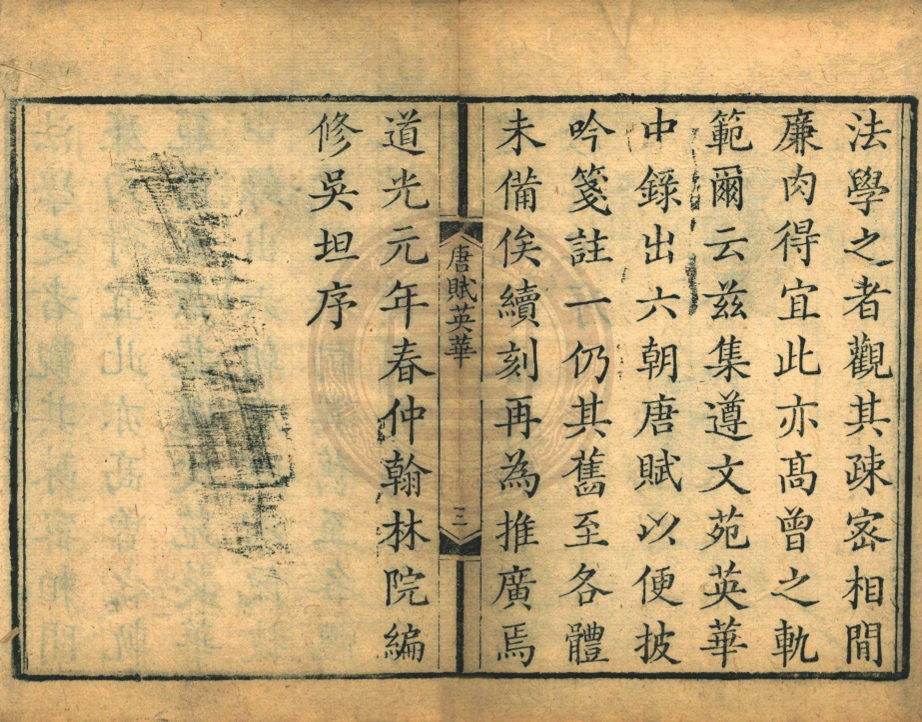 法學之者觀其疎宻相間
廉肉得宜此亦髙曾之軌
範爾云兹集遵文苑英華
中錄出六朝唐賦以便披
吟箋註一仍其舊至各體
未備俟續刻再為推廣焉
唐賦英華
三
道光元年春仲翰林院編
修吳坦序